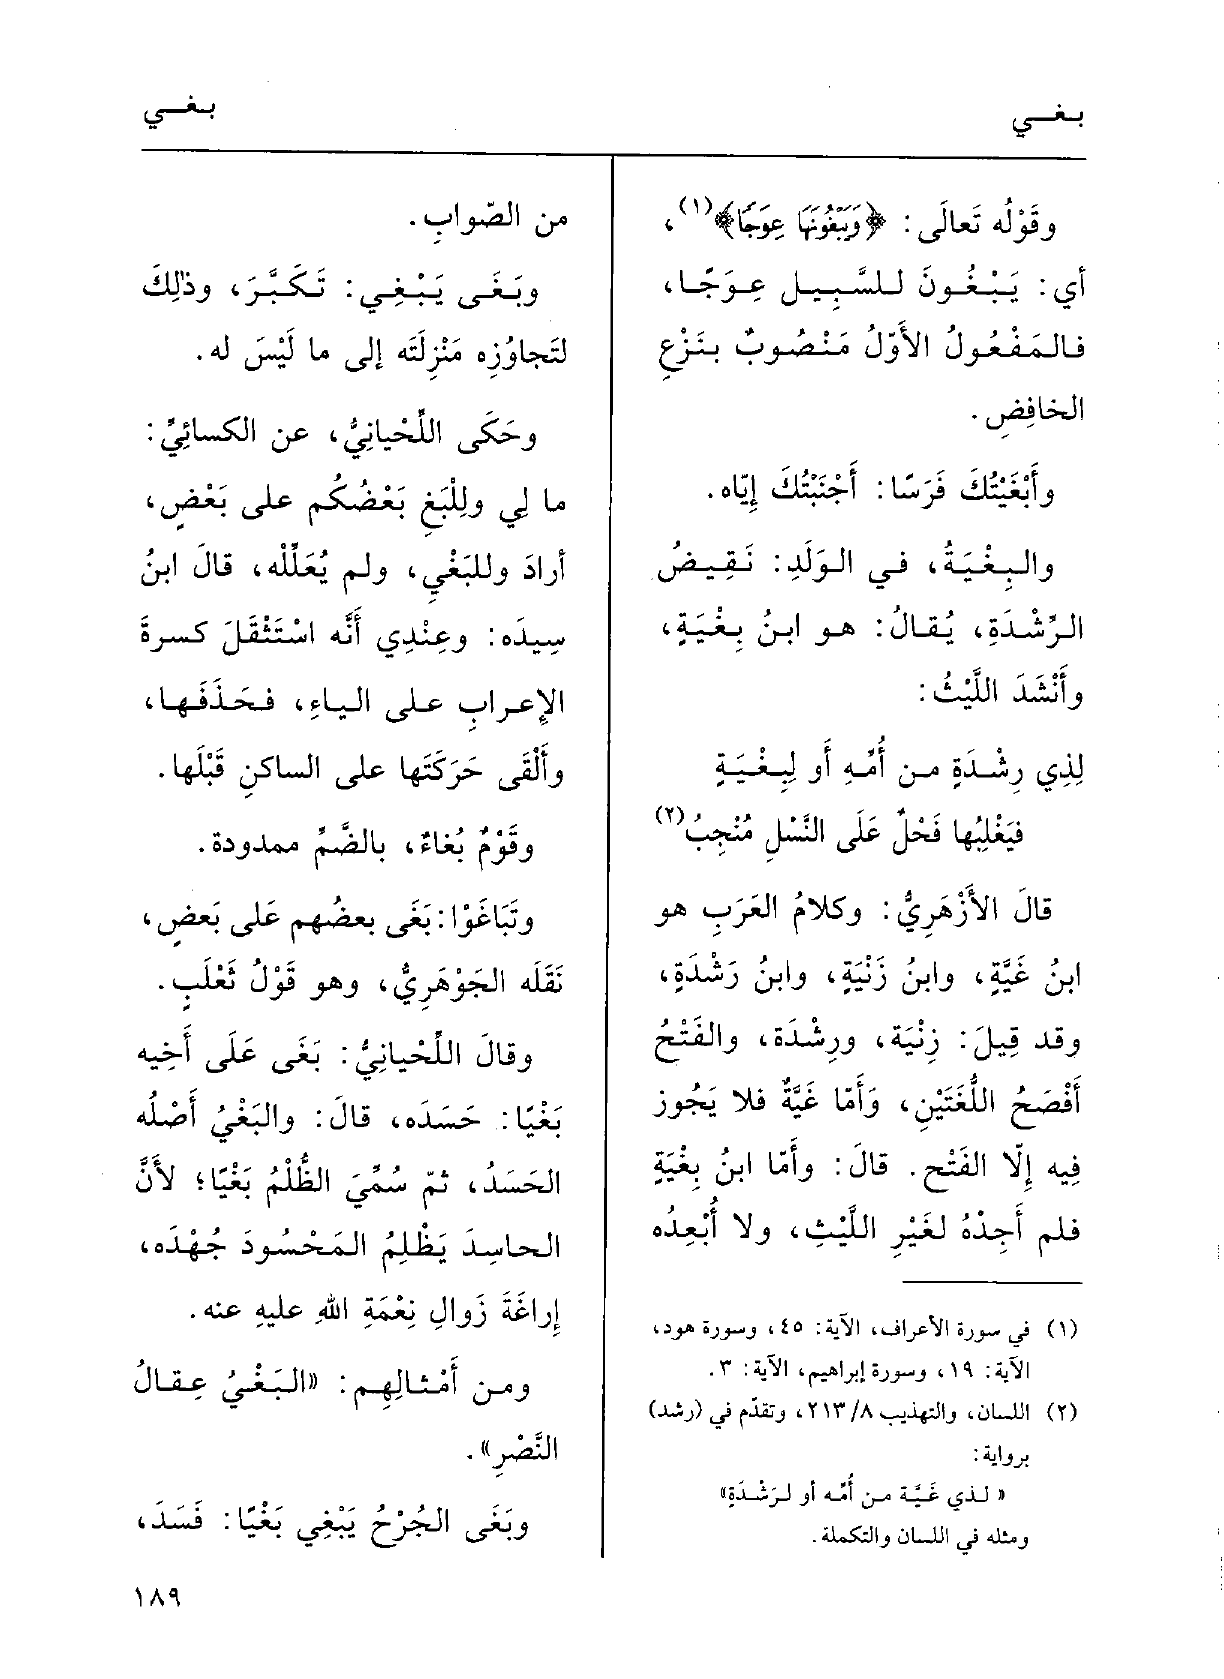 بغي
بغي
وقَوْلُه تَعالَى: ﴿وَيَبْغُونَهَا عِوَجًا﴾(١)،
أي: يَبْغُونَ للسَّبِيلِ عِوَجًا،
فالمَفْعُولُ الأوّلُ مَنْصُوبٌ بنَزْعِ
الخافِضِ.
وأَبْغَيْتُكَ فَرَسًا: أَجْنَبْتُكَ إيّاه.
والبِغْيَةُ، في الوَلَدِ: نَقِيضُ
الرِّشْدَةِ، يُقالُ: هو ابنُ بِغْيَةٍ،
وأَنْشَدَ اللَّيْثُ:
لِذِي رِشْدَةٍ من أُمِّهِ أَو لِبِغْيَةٍ
فيَغْلِبُها فَحْلٌ عَلَى النَّسْلِ مُنْجِبُ(٢)
قالَ الأَزْهَرِيُّ: وكلامُ العَرَبِ هو
ابنُ غَيَّةٍ، وابنُ زَنْيَةٍ، وابنُ رَشْدَةٍ،
وقد قِيلَ: زِنْيَة، ورِشْدَة، والفَتْحُ
أَفْصَحُ اللُّغَتَيْنِ، وَأَمّا غَيَّةٌ فلا يَجُوز
فِيه إلّا الفَتْح. قالَ: وأمّا ابنُ بِغْيَةٍ
فلم أَجِدْهُ لغَيْرِ اللَّيْثِ، ولا أُبْعِدُه
(١) في سورة الأعراف، الآية: ٤٥، وسورة هود،
الآية: ١٩، وسورة إبراهيم، الآية: ٣.
(٢) اللسان، والتهذيب ٢١٣/٨، وتقدّم في (رشد)
برواية:
« لذي غَيَّة من أُمّه أو لرَشْدَةٍ»
ومثله في اللسان والتكملة.
من الصّوابِ.
وبَغَى يَبْغِي: تَكَبَّرَ، وذلِكَ
لتَجاوُزِه مَنْزِلَتَه إلى ما لَيْسَ له.
وحَكَى اللِّحْيانِيُّ، عن الكسائِيِّ:
ما لِي وللْبَغِ بَعْضُكُم على بَعْضٍ،
أرادَ وللبَغْيِ، ولم يُعَلِّله، قالَ ابنُ
سِيدَه: وعِنْدِي أَنَّه اسْتَثْقَلَ كسرةَ
الإعرابِ على الياءِ، فحَذَفَها،
وأَلْقَى حَرَكَتَها على الساكنِ قَبْلَها.
وقَوْمٌ بُغاءٌ، بالضَّمِّ ممدودة.
وتَبَاغَوْا: بَغَى بعضُهم عَلى بَعضٍ،
نَقَلَه الجَوْهَرِيُّ، وهو قَوْلُ ثَعْلَبٍ.
وقالَ اللِّحْيانِيُّ: بَغَى عَلَى أَخِيه
بَغْيًا: حَسَدَه، قالَ: والبَغْيُ أَصْلُه
الحَسَدُ، ثمّ سُمِّيَ الظُّلْمُ بَغْيًا؛ لأَنَّ
الحاسِدَ يَظْلِمُ المَحْسُودَ جُهْدَه،
إراغَةَ زَوالِ نِعْمَةِ اللهِ عليهِ عنه.
ومن أَمْثالِهِم: «البَغْيُ عِقالُ
النَّصْرِ».
وبَغَى الجُرْحُ يَبْغِي بَغْيًا: فَسَدَ،
١٨٩